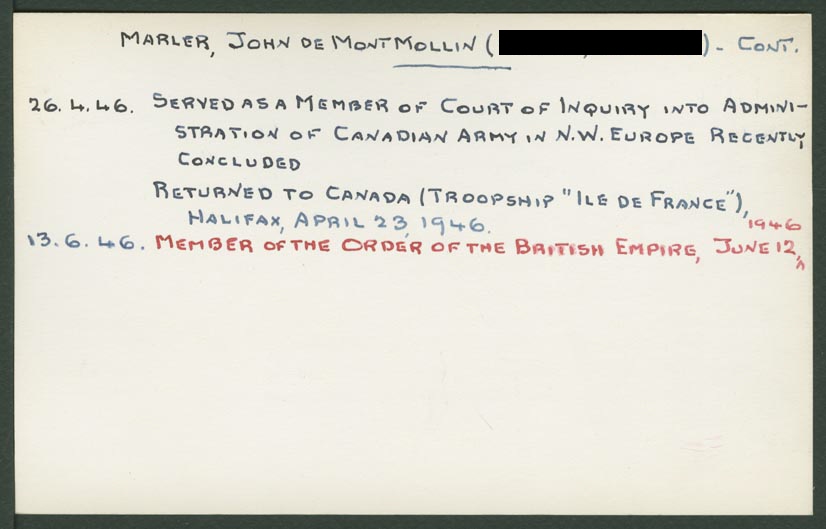 MARLER, JOHN DE MONTMOLLIN ( , ) - CONT.
26.4.46. SERVED AS A MEMBER OF COURT OF INQUIRY INTO ADMINI-
STRATION OF CANADIAN ARMY IN N.W. EUROPE RECENTLY
CONCLUDED
RETURNED TO CANADA (TROOPSHIP "ILE DE FRANCE"),
HALIFAX, APRIL 23, 1946.
1946
13.6.46. MEMBER OF THE ORDER OF THE BRITISH EMPIRE, JUNE 12, ^